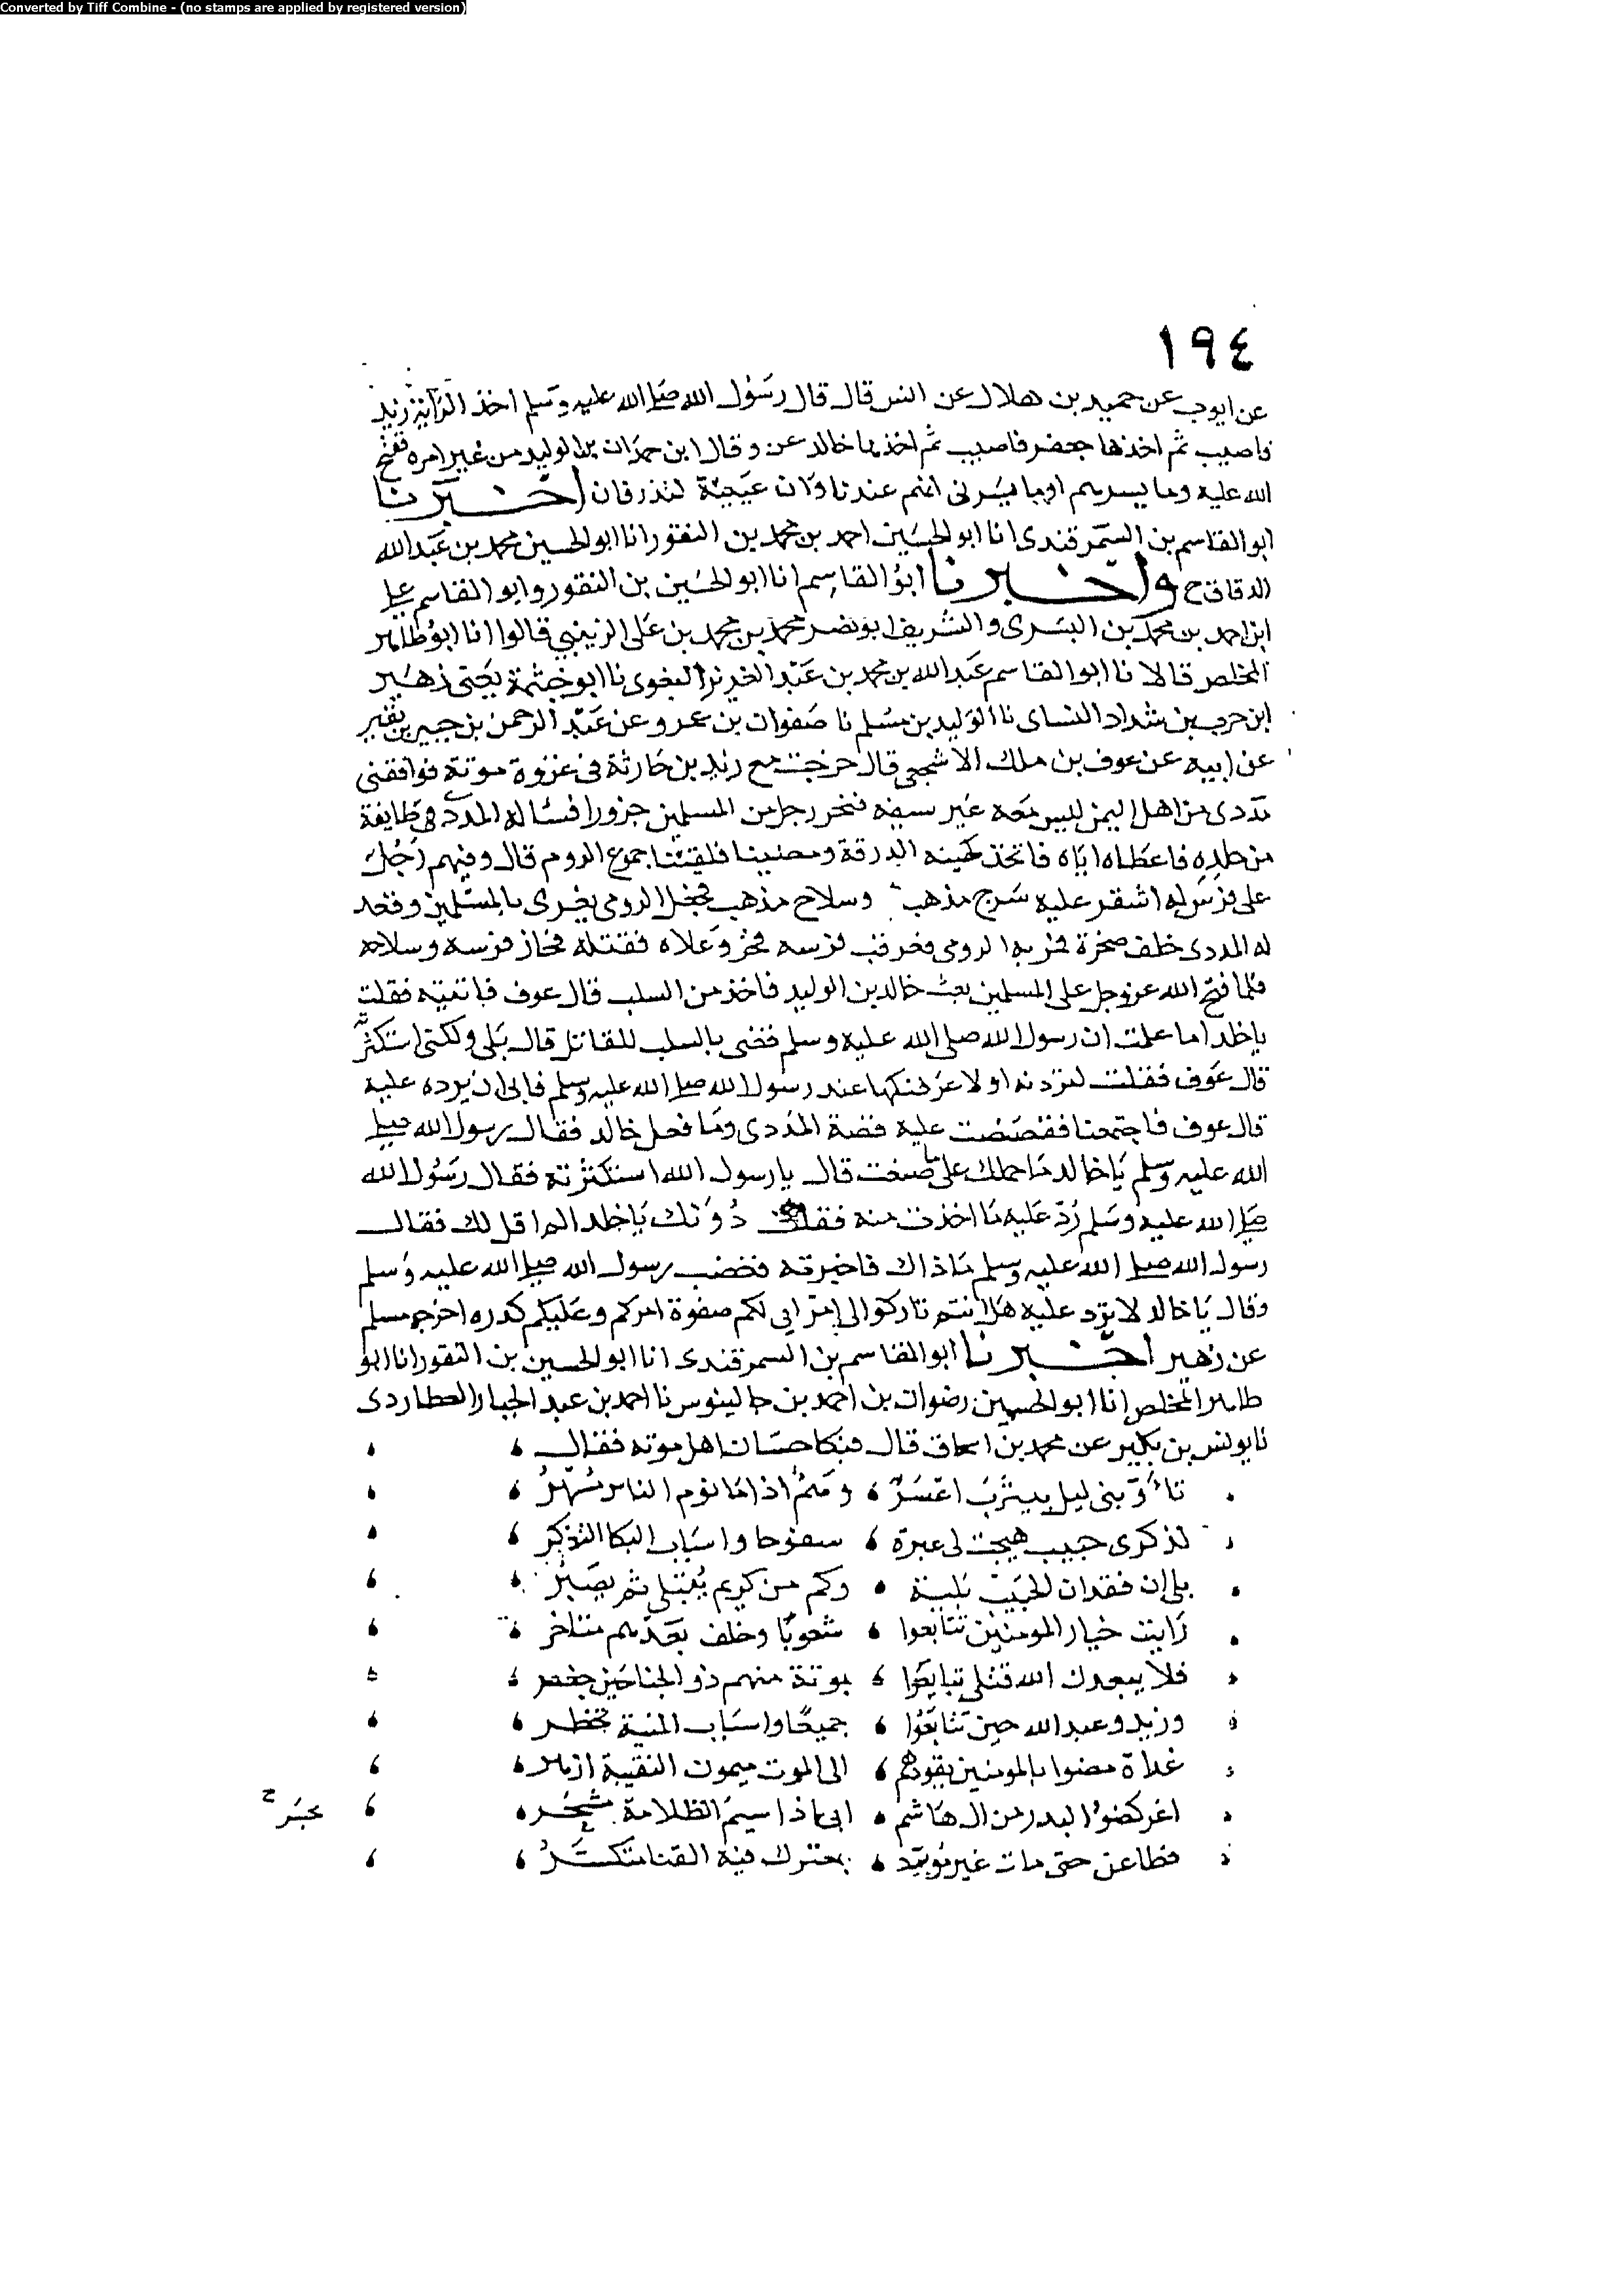 Converted by Tiff Combine - (no stamps are applied by registered version)
١٩٤
عن ايوب عن حميد بن هلال عن انس قال قال رسول الله صلى الله عليه وسلم اخذ الراية زيد
فاصيب ثم اخذها جعفر فاصيب ثم اخذها خالد عن وقال ابن حمدان بن الوليد من غير امره ففتح
الله عليه وما يسرهم او ما يسرني انهم عندنا وان عينيه لتذرفان اخبرنا
ابو القاسم بن السمرقندي انا ابو الحسين احمد بن محمد بن النقور انا ابو الحسين محمد بن عبد الله
الدقاق ح واخبرنا ابو القاسم انا ابو الحسين بن النقور وابو القاسم علي
ابن احمد بن محمد بن البسري والشريف ابو نصر محمد بن محمد بن علي الزينبي قالوا انا ابو طاهر
المخلص قالا نا ابو القاسم عبد الله بن محمد بن عبد العزيز البغوي نا ابو خيثمة يعني زهير
ابن حرب بن شداد النساي نا الوليد بن مسلم نا صفوان بن عمرو عن عبد الرحمن بن جبير بن نفير
عن ابيه عن عوف بن ملك الاشجعي قال خرجت مع زيد بن حارثة في غزوة موتة فوافقني
مددي من اهل اليمن ليس معه غير سيفه فنحر رجل من المسلمين جزورا فساله المددي طايفة
من جلده فاعطاه اياه فاتخذ كهيئة الدرقة ومضينا فلقيتنا جموع الروم قال وفيهم رجل
على فرس له اشقر عليه سرج مذهب وسلاح مذهب فجعل الرومي يغري بالمسلمين وقعد
له المددي خلف صخرة فمر به الرومي فعرقب فرسه فخر وعلاه فقتله فحاز فرسه وسلاحه
فلما فتح الله عز وجل على المسلمين بعث خالد بن الوليد فاخذ من السلب قال عوف فاتيته فقلت
يا خلد اما علمت ان رسول الله صلى الله عليه وسلم قضى بالسلب للقاتل قال بلى ولكني استكثرته
قال عوف فقلت لتردنه او لاعرفنكها عند رسول الله صلى الله عليه وسلم فابى ان يرده عليه
قال عوف فاجتمعنا فقصصت عليه قصة المددي وما فعل خالد فقال رسول الله صلى
الله عليه وسلم يا خالد ما حملك على ما صنعت قال يا رسول الله استكثرته فقال رسول الله
صلى الله عليه وسلم رد عليه ما اخذت منه فقلت دونك يا خلد الم اقل لك فقال
رسول الله صلى الله عليه وسلم ما ذاك فاخبرته فغضب رسول الله صلى الله عليه وسلم
وقال يا خالد لا ترد عليه هل انتم تاركوا لي امراي لكم صفوة امركم وعليكم كدره اخرجه مسلم
عن زهير اخبرنا ابو القاسم بن السمرقندي انا ابو الحسين بن النقور انا ابو
طاهر المخلص انا ابو الحسين رضوان بن احمد بن جالينوس نا احمد بن عبد الجبار العطاردي
نا يونس بن بكير عن محمد بن اسحاق قال فبكا حسان اهل موته فقال
تاوبني ليل بيثرب اعسر وهم اذا ما نوم الناس مسهر
لذكرى حبيب هيجت لي عبرة سفوحا واسباب البكا التذكر
بلى ان فقدان الحبيب بلية وكم من كريم يبتلى ثم يصبر
رايت خيار المومنين تتابعوا شعوبا وخلف بعدهم متاخر
فلا يبعدن الله قتلى تبايعوا بموتة منهم ذو الجناحين جعفر
وزيد وعبد الله حين تتابعوا جميعا واسباب المنية تخطر
غداة مضوا بالمومنين يقودهم الى الموت ميمون النقيبة ازهر
اغر كضوء البدر من ال هاشم ابي اذا سيم الظلامة
فطاعن حتى مات غير موسد بمعترك فيه القنا متكسر